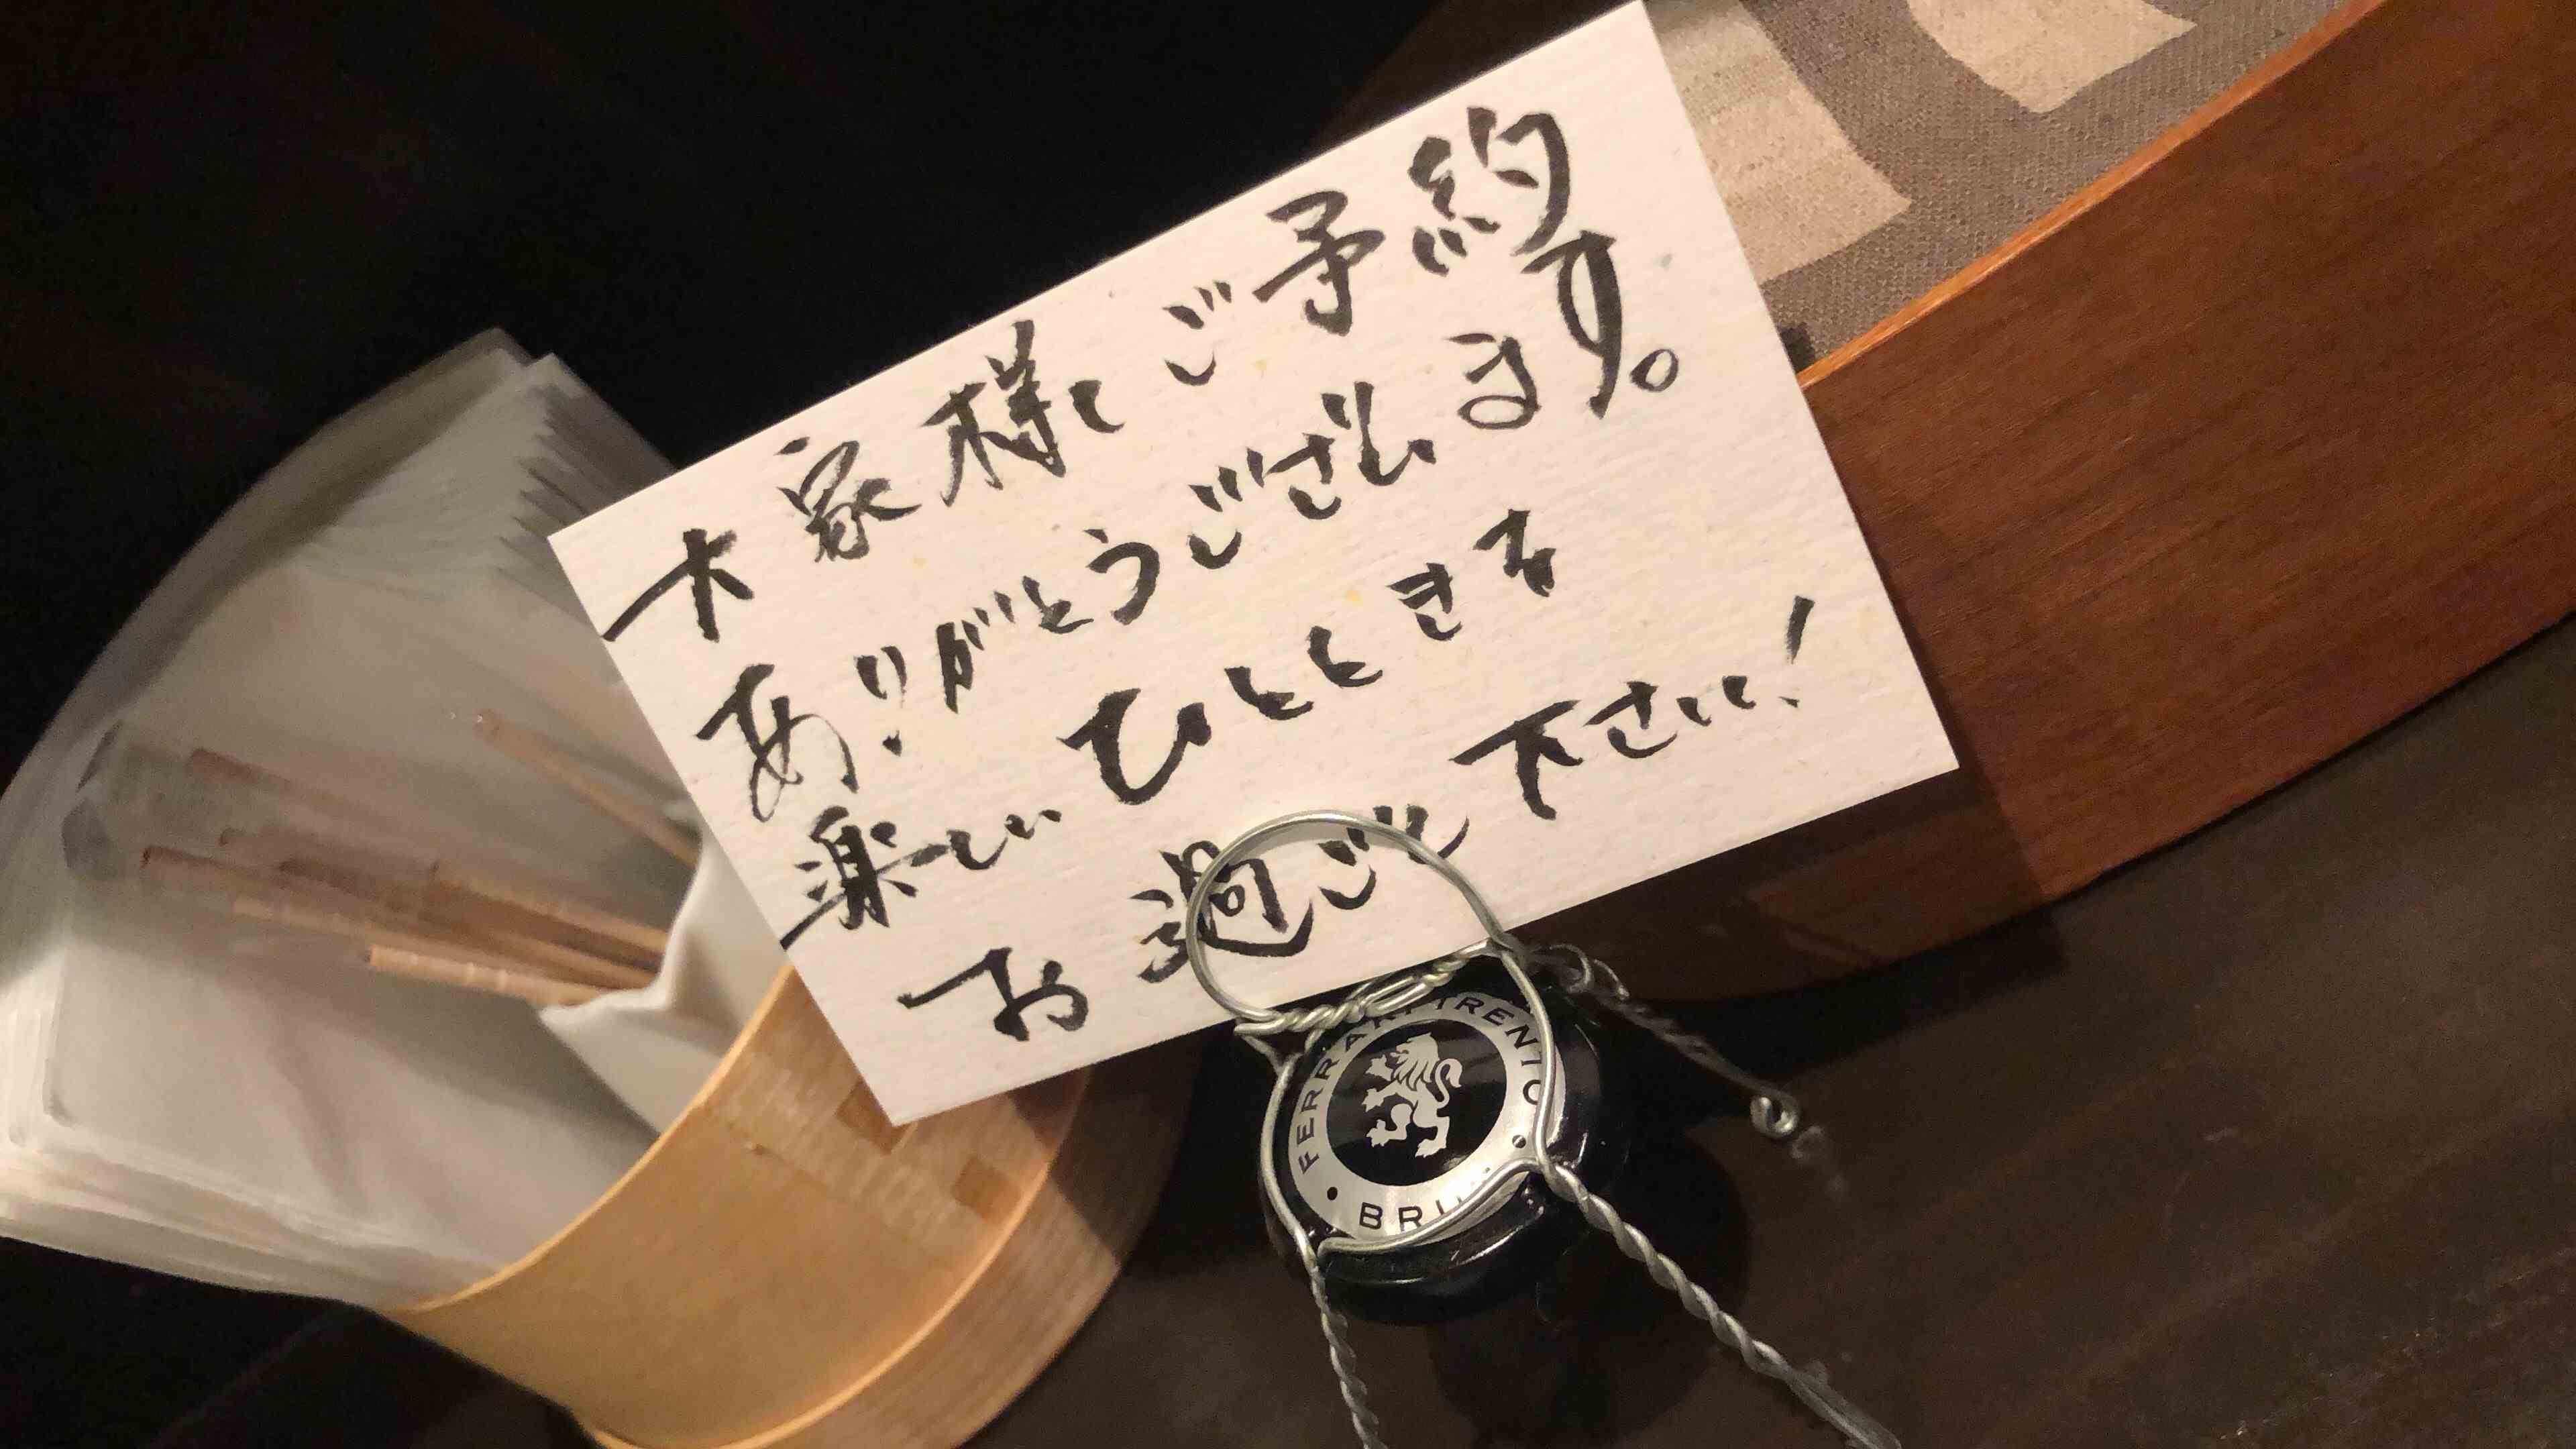 大家様、ご予約
ありがとうございます。
楽しいひとときを
お過ごし下さい!
FERRARI TRENTO
BRUT